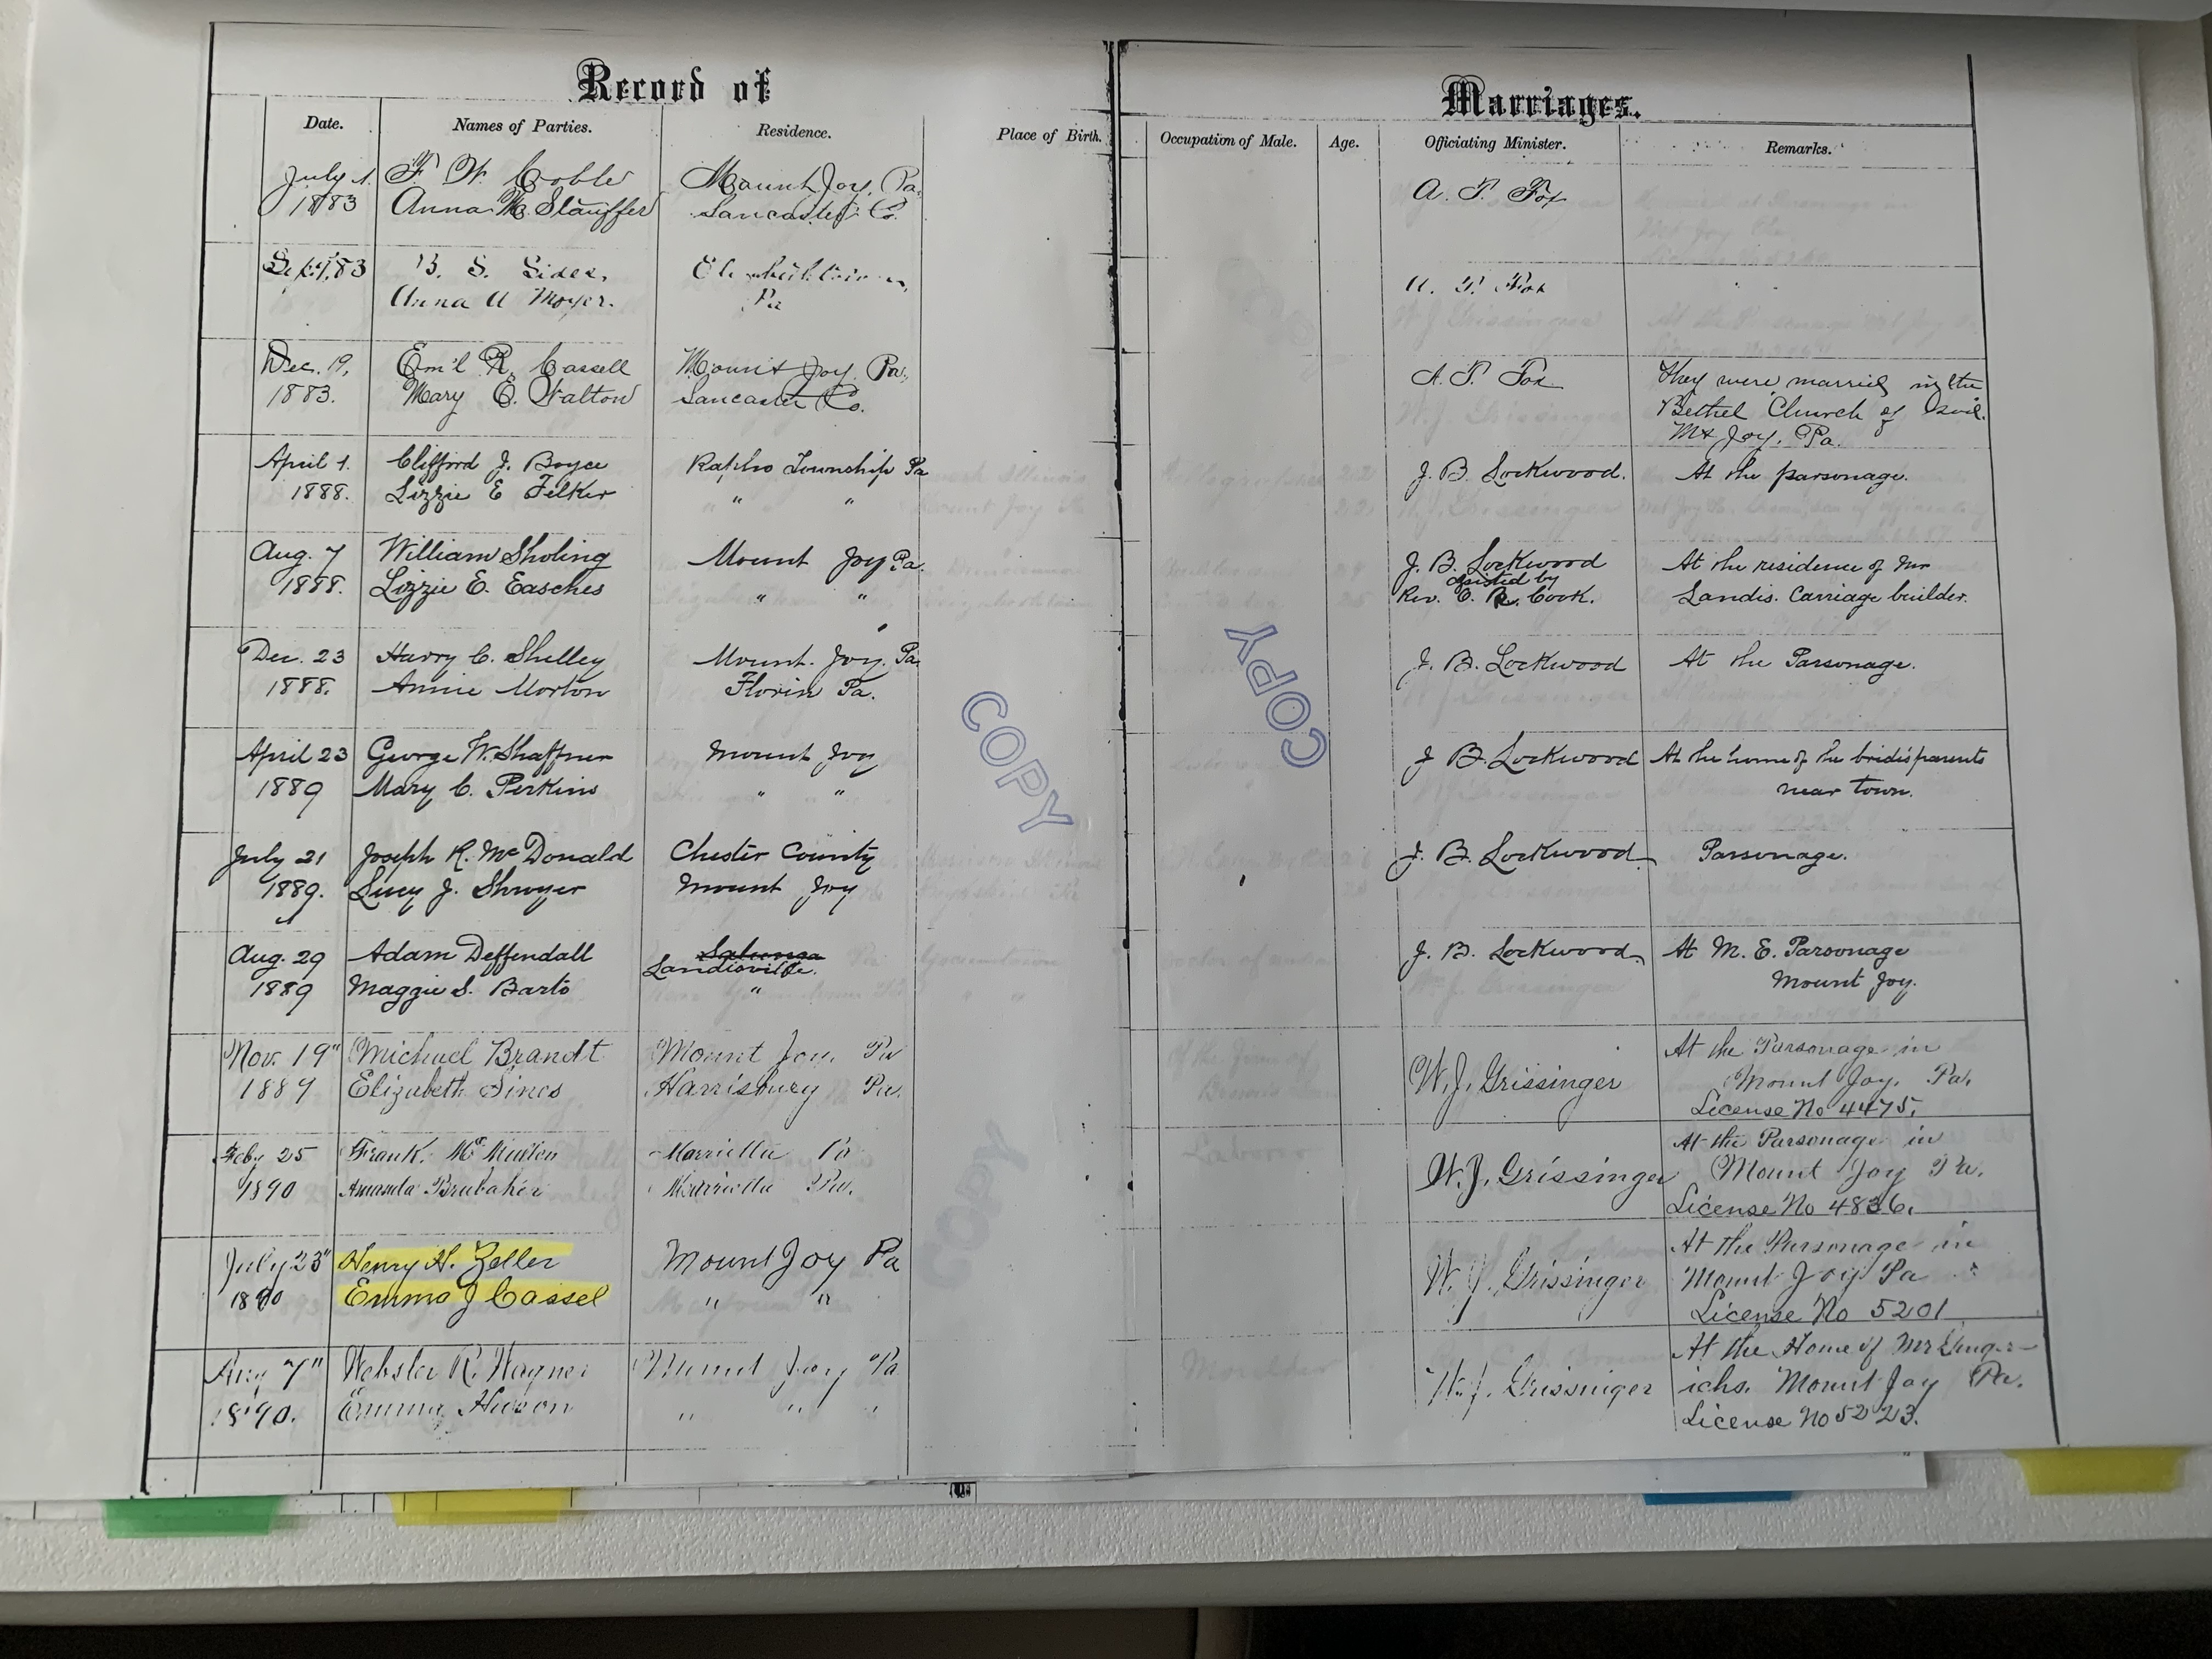 Record of Marriages.
Date. Names of Parties. Residence. Place of Birth. Occupation of Male. Age. Officiating Minister. Remarks.
July 1. F W Coble Mount Joy, Pa. A. T. Fox
1883 Anna M. Stauffer Lancaster Co.
Sept. 1, 83 B. S. Sides, A. T. Fox
Anna A Moyer. Pa
Dec. 19, Em'l R. Cassell Mount Joy, Pa. A. T. Fox They were married in the
1883. Mary E. Walton Lancaster Co. Bethel Church of
Mt Joy, Pa.
April 1. Clifford J. Boyce Rapho Township Pa J. B. Lockwood. At the parsonage.
1888. Lizzie E Felker " "
Aug. 7 William Sholing Mount Joy Pa. J. B. Lockwood At the residence of Mr
1888. Lizzie E. Easches " " assisted by Rev. E. R. Cook. Landis. Carriage builder.
Dec. 23 Harry C. Shelley Mount. Joy. Pa J. B. Lockwood At the Parsonage.
1888. Annie Morton Florin Pa.
April 23 George W. Shaffner Mount Joy J B. Lockwood At the home of the bride's parents
1889 Mary C. Perkins " " near town.
July 21 Joseph R. McDonald Chester County J. B. Lockwood Parsonage.
1889. Lucy J. Shroyer Mount Joy
Aug. 29 Adam Deffendall Salunga Landisville. J. B. Lockwood. At M. E. Parsonage
1889 Maggie S. Barto " Mount Joy.
Nov. 19" Michael Brandt Mount Joy, Pa W. J. Grissinger At the Parsonage in
1889 Elizabeth Sines Harrisburg Pa. Mount Joy, Pa.
License No 4475.
Feby 25 Frank. Marietta Pa W. J. Grissinger At the Parsonage in
1890 Amanda Brubaker Marietta Pa. Mount Joy Pa.
License No 4836.
July 23" Henry H. Zeller Mount Joy Pa W. J. Grissinger At the Parsonage in
1890 Emma J Cassel " " Mount Joy Pa
License No 5201
Aug 7" Webster R. Wagner Mount Joy Pa W. J. Grissinger At the Home of Mr
1890. Emma " " " Mount Joy Pa.
License No 5223.
COPY
COPY